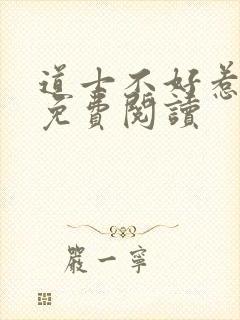 道士不好惹
免費閱讀
嚴一寧